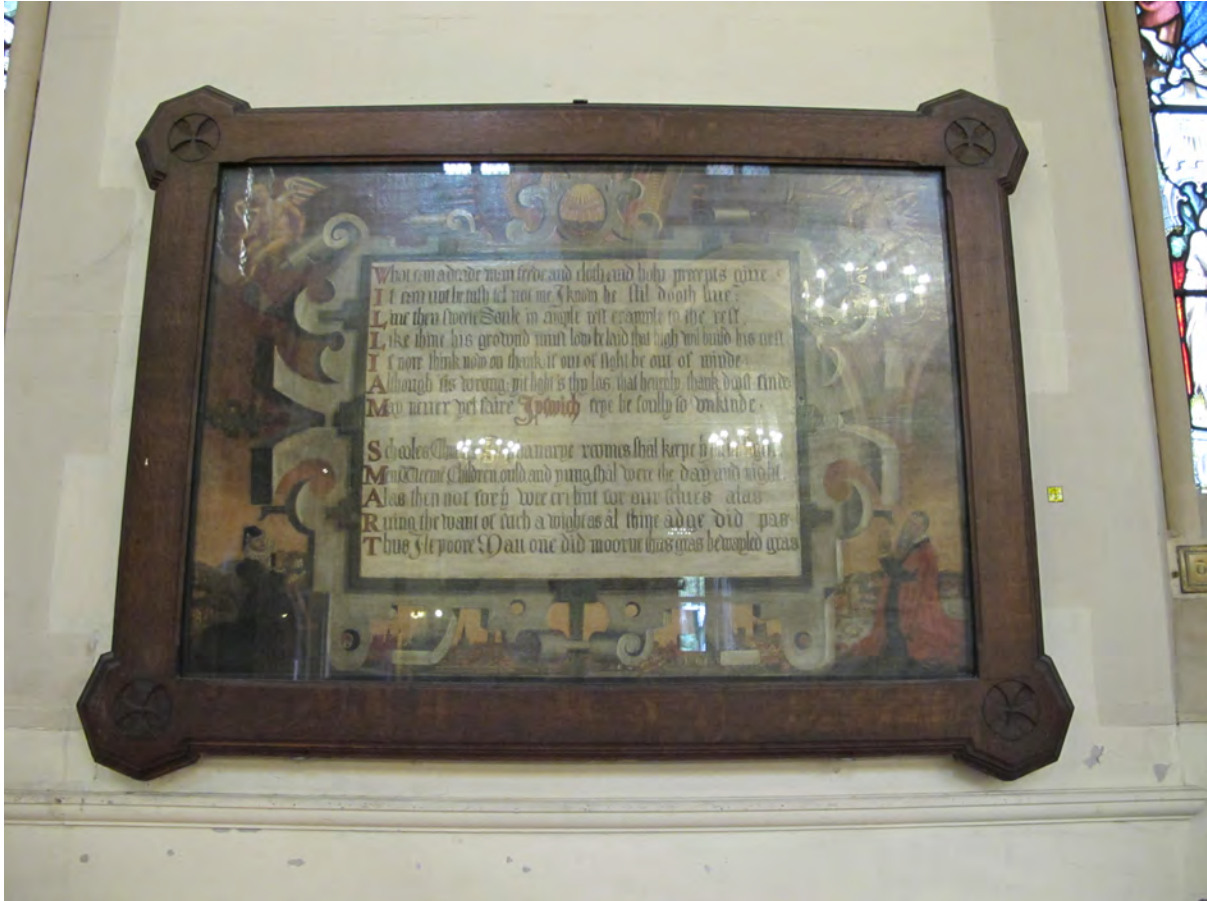 What can a deade man feede and cloth and holy precepts give
It can not be tush tel not me I know he stil dooth live:
Live then sweete Soule in angels rest example to the rest
Like thine his grownd must low be laid that high wil buid his nest
If nore think now on thank if out of sight be out of minde
Although tis wrong, yit light's thy los that hevenly thank doost finde
May never yet faire Ipswich eye be soully so unkinde.
Schooles roomes shal keepe
Children ould and yung shal were the day and night
Alas then not for wee cri but for our selves alas
Ruing the want of such a wight as al thine adge did pas
Thus Ile poore Man one did moorne gras bewayled gras